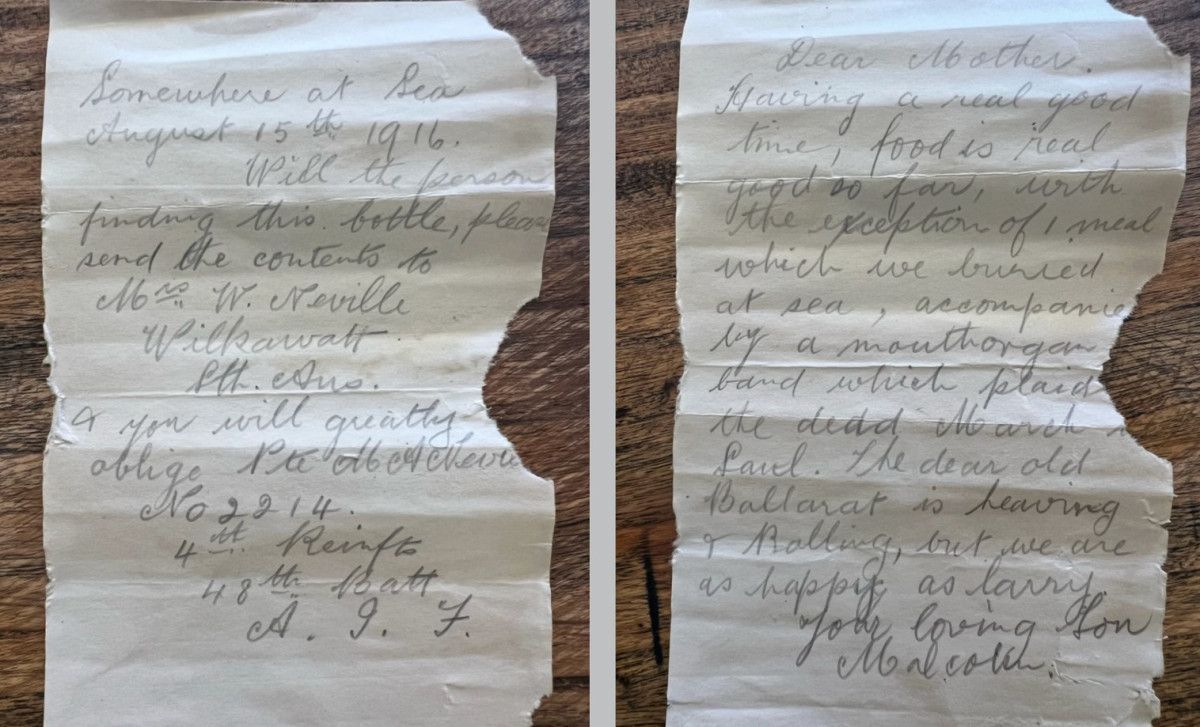 Somewhere at Sea
August 15th 1916.
Will the person
finding this bottle, please
send the contents to
Mrs W. Neville
Wilkawatt
Sth. Aus.
& you will greatly
oblige Pte M A Nevil
No 2214.
4th Reinfts
48th Batt
A. I. F.
Dear Mother.
Having a real good
time, food is real
good so far, with
the exception of 1 meal
which we buried
at sea, accompanie
by a mouthorgan
band which plaid
the dedd March
Saul. The dear old
Ballarat is heaving
& Rolling, but we are
as happy as larry.
Your loving Son
Malcolm.